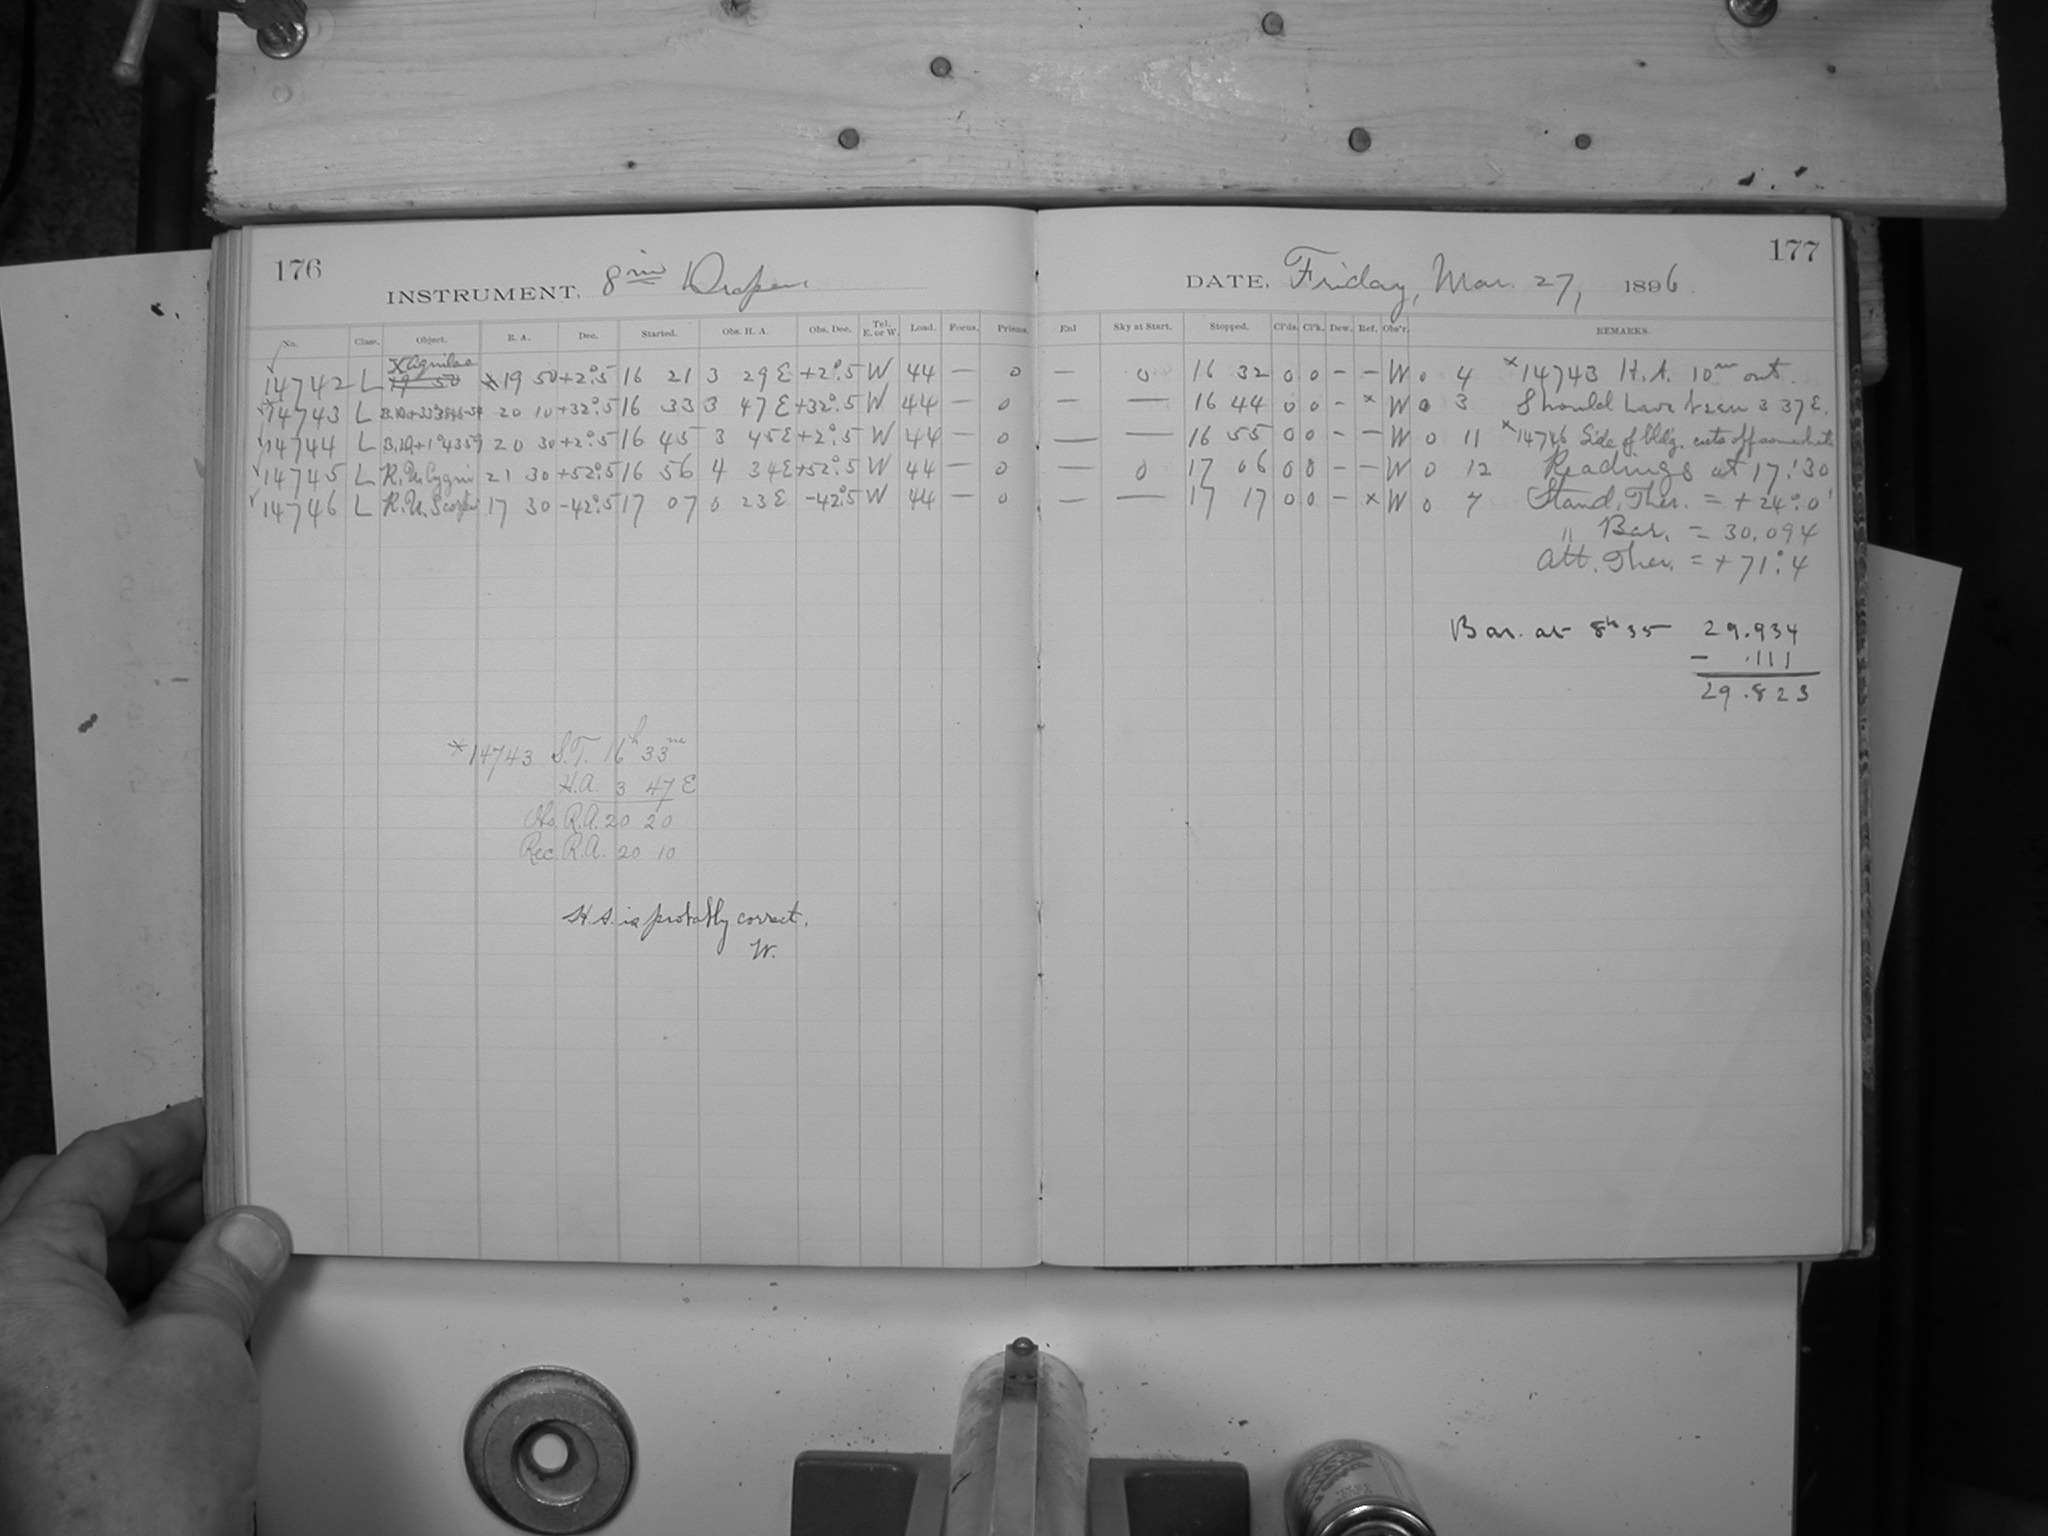 176
INSTRUMENT, 8 in Draper
No. Class. Object. R. A. Dec. Started. Obs. H. A. Obs. Dec. Tel. E. or W. Load. Focus. Prisms.
14742 L X Aquilae 19 50 * 19 50 +2°.5 16 21 3 29 E +2°.5 W 44 — 0
*14743 L 20 10 +32°.5 16 33 3 47 E +32°.5 W 44 — 0
14744 L B.D.+1°4359 20 30 +2°.5 16 45 3 45 E +2°.5 W 44 — 0
14745 L R.U. Cygni 21 30 +52°.5 16 56 4 34 E +52°.5 W 44 — 0
14746 L R.U. Scorpii 17 30 -42°.5 17 07 0 23 E -42°.5 W 44 — 0
*14743 S.T. 16h 33m
H.A. 3 47 E
Obs. R.A. 20 20
Rec. R.A. 20 10
H.A. is probably correct.
W.
177
DATE, Friday, Mar. 27, 1896
Enl Sky at Start. Stopped. Cl'ds. Cl'k. Dew. Ref. Obs'r. REMARKS.
— 0 16 32 0 0 - - W 0 4 *14743 H.A. 10m out.
— — 16 44 0 0 - * W 0 3 Should have been 3 37 E.
— — 16 55 0 0 - - W 0 11 *14746 Side of bldg. cuts off somewhat
— 0 17 06 0 0 - - W 0 12 Readings at 17:30
— — 17 17 0 0 - * W 0 7 Stand. Ther. = +24°.0
" Bar. = 30.094
Att. Ther. = +71°.4
Bar. at 8h 35 29.934
- .111
29.823